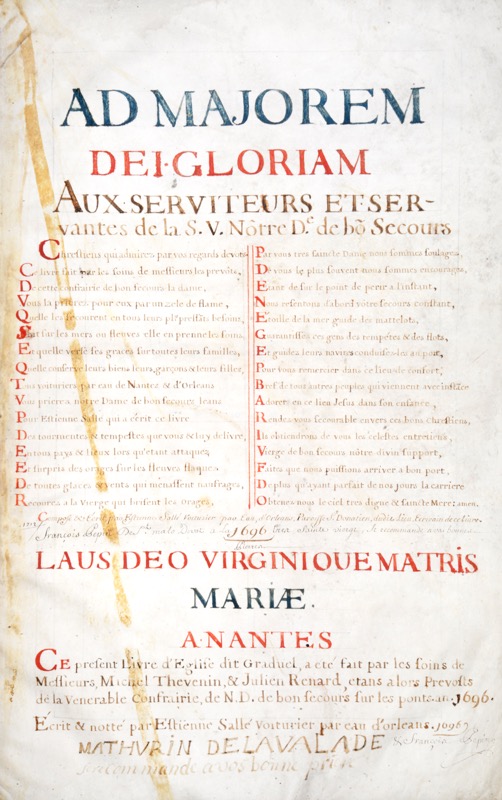 AD MAJOREM
DEI·GLORIAM
AUX·SERVITEURS ET·SER-
vantes de la S. V. Nôtre D.e de bō Secours
Chrestiens qui admirez par vos regards devots
Ce livre fait par les soins de messieurs les prevôts,
De cette confrairie de bon secours la dame,
Vous la prierez pour eux par un zele de flame,
Quelle les secourent en tous leurs pl.s pressās besoins,
Soit sur les mers ou fleuves elle en prenne les soins,
Et quelle verse ses graces sur toutes leurs familles,
Quelle conserve leurs biens, leurs garçons & leurs filles,
Tous voituriers par eau de Nantez & d'Orleans
Vous prierez a nôtre Dame de bon secours leans
Pour Estienne Sallé qui a écrit ce livre
Des tourmentes & tempestes que vous & luy delivre,
En tous pays & lieux lors qu'etant attaquez
Et surpris des orages sur les fleuves flaques
De toutes glaces & vents qui menassent naufrages,
Recourez a la Vierge qui brisent les orages,
Par vous tres saincte Dame nous sommes soulagez,
De vous le plus souvent nous sommes encouragez,
Etans de sur le point de perir a l'instant,
Nous resentons d'abord vôtre secours constant,
Etoille de la mer guide des mattelots,
Garentissez ces gens des tempêtes & des flots,
Et guidez leurs navires conduisez-les au port,
Pour vous remercier dans ce lieu de confort,
Bref de tous autres peuples qui viennent avec instāce
Adorer en ce lieu Jesus dans son enfance,
Rendez-vous secourable envers ces bons Chrestiens,
Ils obtiendrons de vous les celestes entretiens
Vierge de bon secours nôtre divin support,
Faites que nous puissions arriver a bon port,
De plus qu'ayant parfait de nos jours la carriere
Obtenez-nous le ciel tres digne & saincte Mere: amen.
Composé & Ecrit par Estienne Sallé Voiturier par Eau, d'Orleans, Paroisse S. Donatien, dudit Lieu, Ecrivain de ce Livre.
François 1696
LAUS DEO VIRGINIQUE MATRIS
MARIÆ.
A·NANTES
Ce present Livre d'Eglise dit Graduel, a eté fait par les soins de
Messieurs, Michel Thevenin, & Julien Renard, etans alors Prevosts
de la Venerable Confrairie, de N.D. de bon secours sur les ponts. an. 1696.
Ecrit & notté par Estienne Sallé Voiturier par eau d'orleans. 1696
MATHURIN DELAVALADE
se recommande a vos bonne
François